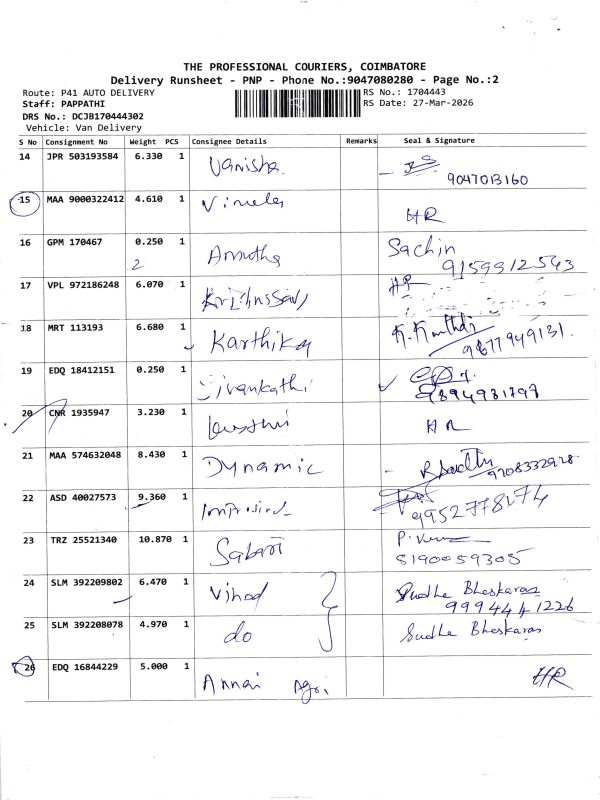 THE PROFESSIONAL COURIERS, COIMBATORE
Delivery Runsheet - PNP - Phone No.:9047080280 - Page No.:2
Route: P41 AUTO DELIVERY RS No.: 1704443
Staff: PAPPATHI RS Date: 27-Mar-2026
DRS No.: DCJB170444302
Vehicle: Van Delivery
S No Consignment No Weight PCS Consignee Details Remarks Seal & Signature
14 JPR 503193584 6.330 1 Vanisha
15 MAA 9000322412 4.610 1 HR
16 GPM 170467 0.250 1 Amutha Sachin
2 9159912543
17 VPL 972186248 6.070 1 HR
18 MRT 113193 6.680 1 Karthika
9877949131
19 EDQ 18412151 0.250 1
9894931797
20 CNR 1935947 3.230 1 HR
21 MAA 574632048 8.430 1 Dynamic
9708332928
22 ASD 40027573 9.360 1
23 TRZ 25521340 10.870 1 Sabari
8190059305
24 SLM 392209802 6.470 1 Vinod Sudha Bhaskaran
9994441226
25 SLM 392208078 4.970 1 do Sudha Bhaskaran
26 EDQ 16844229 5.000 1 Annai Agri HR